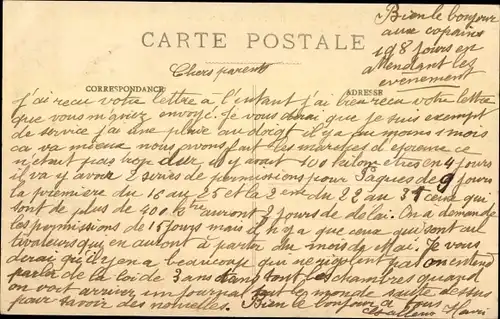 Bien le bonjour
aux copains
198 jours en
attendant les
evènement
CARTE POSTALE
Chers parents
CORRESPONDANCE
ADRESSE
j'ai recu votre lettre a l'instant j'ai bien recu votre lettre
que vous m'aviez envoyé. Je vous dirai que je suis exempt
de service j'ai une plaie au doigt il y a au moins 1 mois
ca va mieux nous avons fait les marches d'épreuve ce
n'etait pas trop dur il y avait 100 kilometres en 4 jours
il va y avoir 2 series de permissions pour Paques de 9 jours
la première du 16 au 25 et la 2em du 22 au 31 ceux qui
sont de plus de 400 auront 2 jours de delai. On a demandé
les permissions de 15 jours mais il n'y a que ceux qui sont
cultivateurs qui en auront à partir du mois de Mai. Je vous
dirai qu'il y en a beaucoup qui ne rigolent pas on entend
parler de la loi de 3 ans dans tout les chambres quand
on voit arriver un journal tout le monde saute dessus
pour savoir des nouvelles. Bien le bonjour a tous